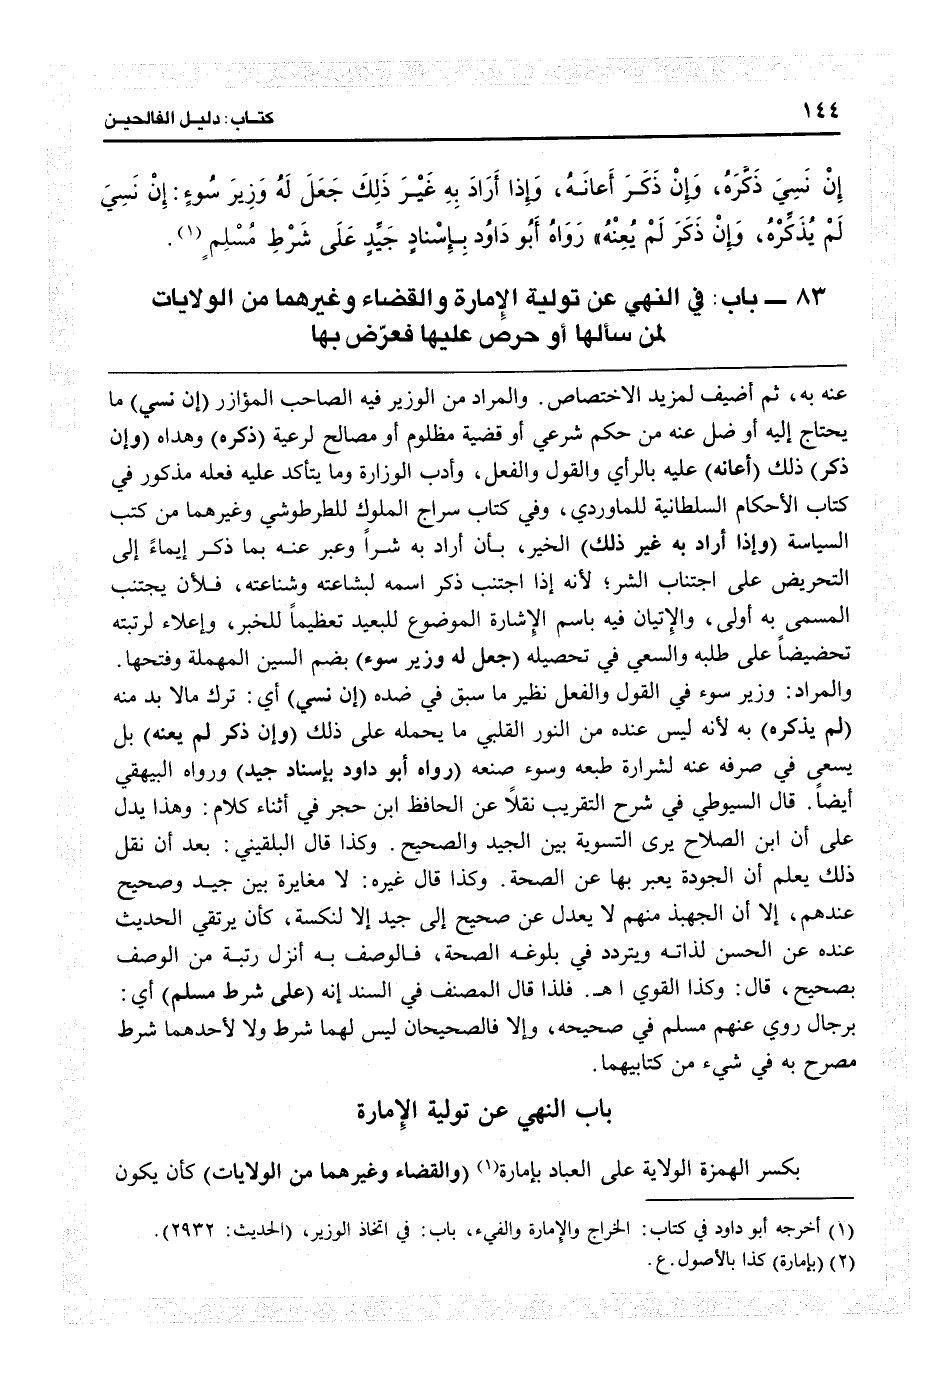 ١٤٤
كتاب: دليل الفالحين
إِنْ نَسِيَ ذَكَّرَهُ، وَإِنْ ذَكَرَ أَعانَهُ، وَإِذا أَرَادَ بِهِ غَيْرَ ذَلِكَ جَعَلَ لَهُ وَزِيرَ سُوءٍ: إِنْ نَسِيَ
لَمْ يُذَكِّرْهُ، وَإِنْ ذَكَرَ لَمْ يُعِنْهُ» رَوَاهُ أَبُو دَاوُد بِإِسْنادٍ جَيِّدٍ عَلَى شَرْطِ مُسْلِمٍ (١).
٨٣ – باب: في النهي عن تولية الإمارة والقضاء وغيرهما من الولايات
لمن سألها أو حرص عليها فعرّض بها
عنه به، ثم أضيف لمزيد الاختصاص. والمراد من الوزير فيه الصاحب المؤازر (إن نسي) ما
يحتاج إليه أو ضل عنه من حكم شرعي أو قضية مظلوم أو مصالح لرعية (ذكره) وهداه (وإن
ذكر) ذلك (أعانه) عليه بالرأي والقول والفعل، وأدب الوزارة وما يتأكد عليه فعله مذكور في
كتاب الأحكام السلطانية للماوردي، وفي كتاب سراج الملوك للطرطوشي وغيرهما من كتب
السياسة (وإذا أراد به غير ذلك) الخير، بأن أراد به شراً وعبر عنه بما ذكر إيماءً إلى
التحريض على اجتناب الشر؛ لأنه إذا اجتنب ذكر اسمه لبشاعته وشناعته، فلأن يجتنب
المسمى به أولى، والإتيان فيه باسم الإشارة الموضوع للبعيد تعظيماً للخبر، وإعلاء لرتبته
تحضيضاً على طلبه والسعي في تحصيله (جعل له وزير سوء) بضم السين المهملة وفتحها.
والمراد: وزير سوء في القول والفعل نظير ما سبق في ضده (إن نسي) أي: ترك مالا بد منه
(لم يذكره) به لأنه ليس عنده من النور القلبي ما يحمله على ذلك (وإن ذكر لم يعنه) بل
يسعى في صرفه عنه لشرارة طبعه وسوء صنعه (رواه أبو داود بإسناد جيد) ورواه البيهقي
أيضاً. قال السيوطي في شرح التقريب نقلاً عن الحافظ ابن حجر في أثناء كلام: وهذا يدل
على أن ابن الصلاح يرى التسوية بين الجيد والصحيح. وكذا قال البلقيني: بعد أن نقل
ذلك يعلم أن الجودة يعبر بها عن الصحة. وكذا قال غيره: لا مغايرة بين جيد وصحيح
عندهم، إلا أن الجهبذ منهم لا يعدل عن صحيح إلى جيد إلا لنكسة، كأن يرتقي الحديث
عنده عن الحسن لذاته ويتردد في بلوغه الصحة، فالوصف به أنزل رتبة من الوصف
بصحيح، قال: وكذا القوي ا هـ. فلذا قال المصنف في السند إنه (على شرط مسلم) أي:
برجال روي عنهم مسلم في صحيحه، وإلا فالصحيحان ليس لهما شرط ولا لأحدهما شرط
مصرح به في شيء من كتابيهما.
باب النهي عن تولية الإمارة
بكسر الهمزة الولاية على العباد بإمارة(١) (والقضاء وغيرهما من الولايات) كأن يكون
(١) أخرجه أبو داود في كتاب: الخراج والإمارة والفيء، باب: في اتخاذ الوزير، (الحديث: ٢٩٣٢).
(٢) (بإمارة) كذا بالأصول.ع.